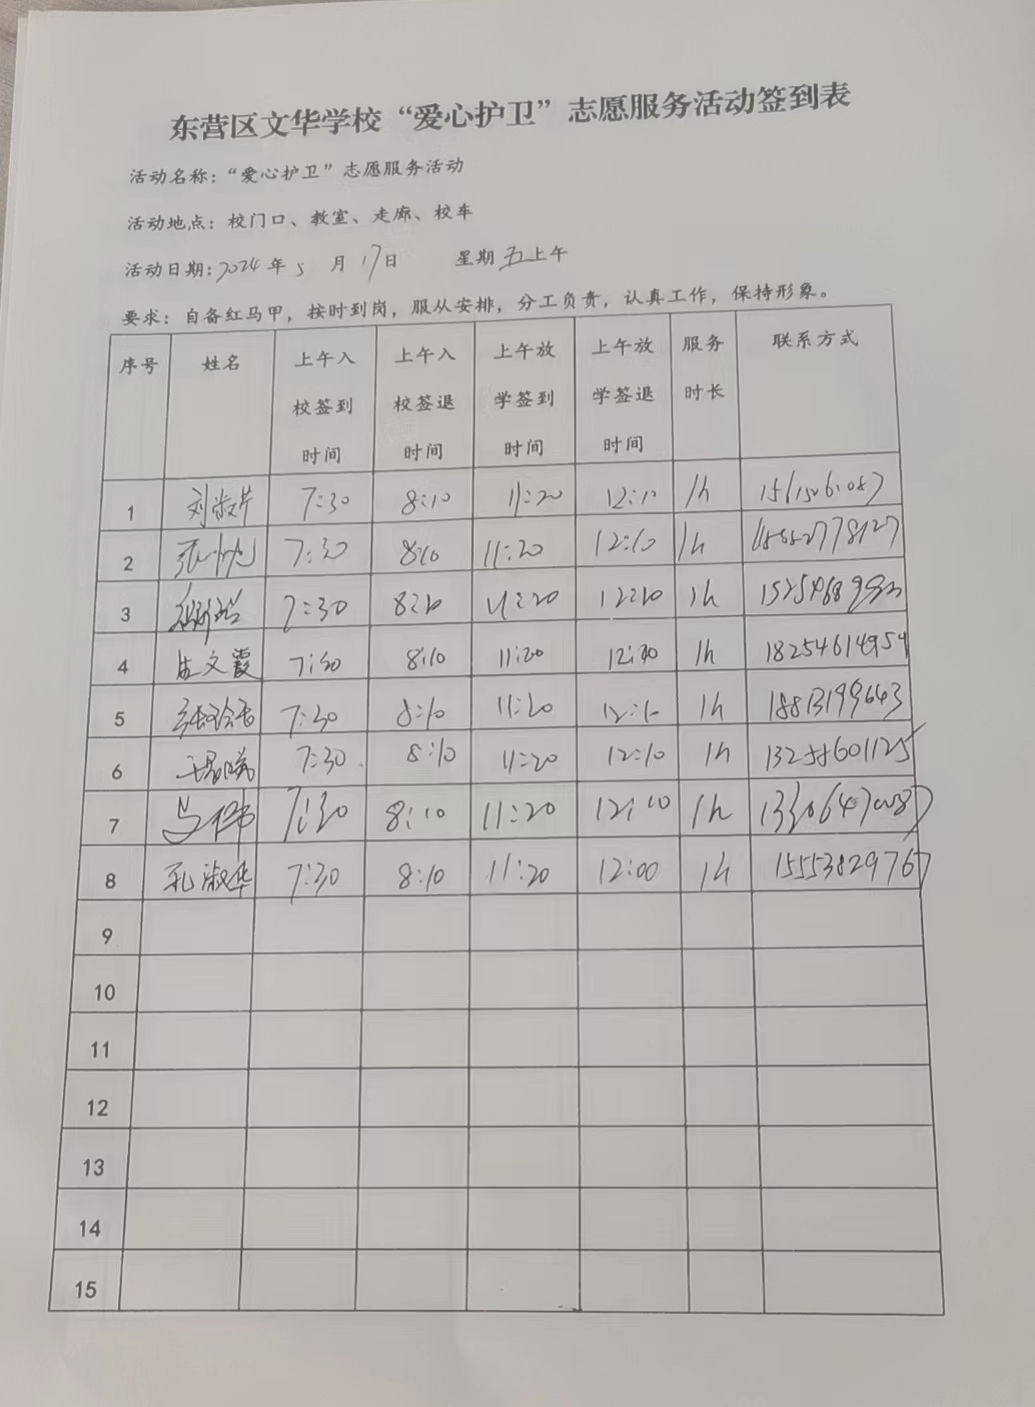 东营区文华学校“爱心护卫”志愿服务活动签到表
活动名称：“爱心护卫”志愿服务活动
活动地点：校门口、教室、走廊、校车
活动日期：2024年5月17日 星期五上午
要求：自备红马甲，按时到岗，服从安排，分工负责，认真工作，保持形象。
序号 姓名 上午入校签到时间 上午入校签退时间 上午放学签到时间 上午放学签退时间 服务时长 联系方式
1 7:30 8:10 11:20 12:10 1h
2 7:30 8:10 11:20 12:10 1h 15552778127
3 7:30 8:10 11:20 12:10 1h
4 7:30 8:10 11:20 1h 18254614954
5 7:30 8:10 11:20 12:10 1h 18813199643
6 7:30 8:10 11:20 12:10 1h 13255601125
7 7:30 8:10 11:20 12:10 1h
8 孔淑华 7:30 8:10 11:20 12:00 1h 15553829767
9
10
11
12
13
14
15